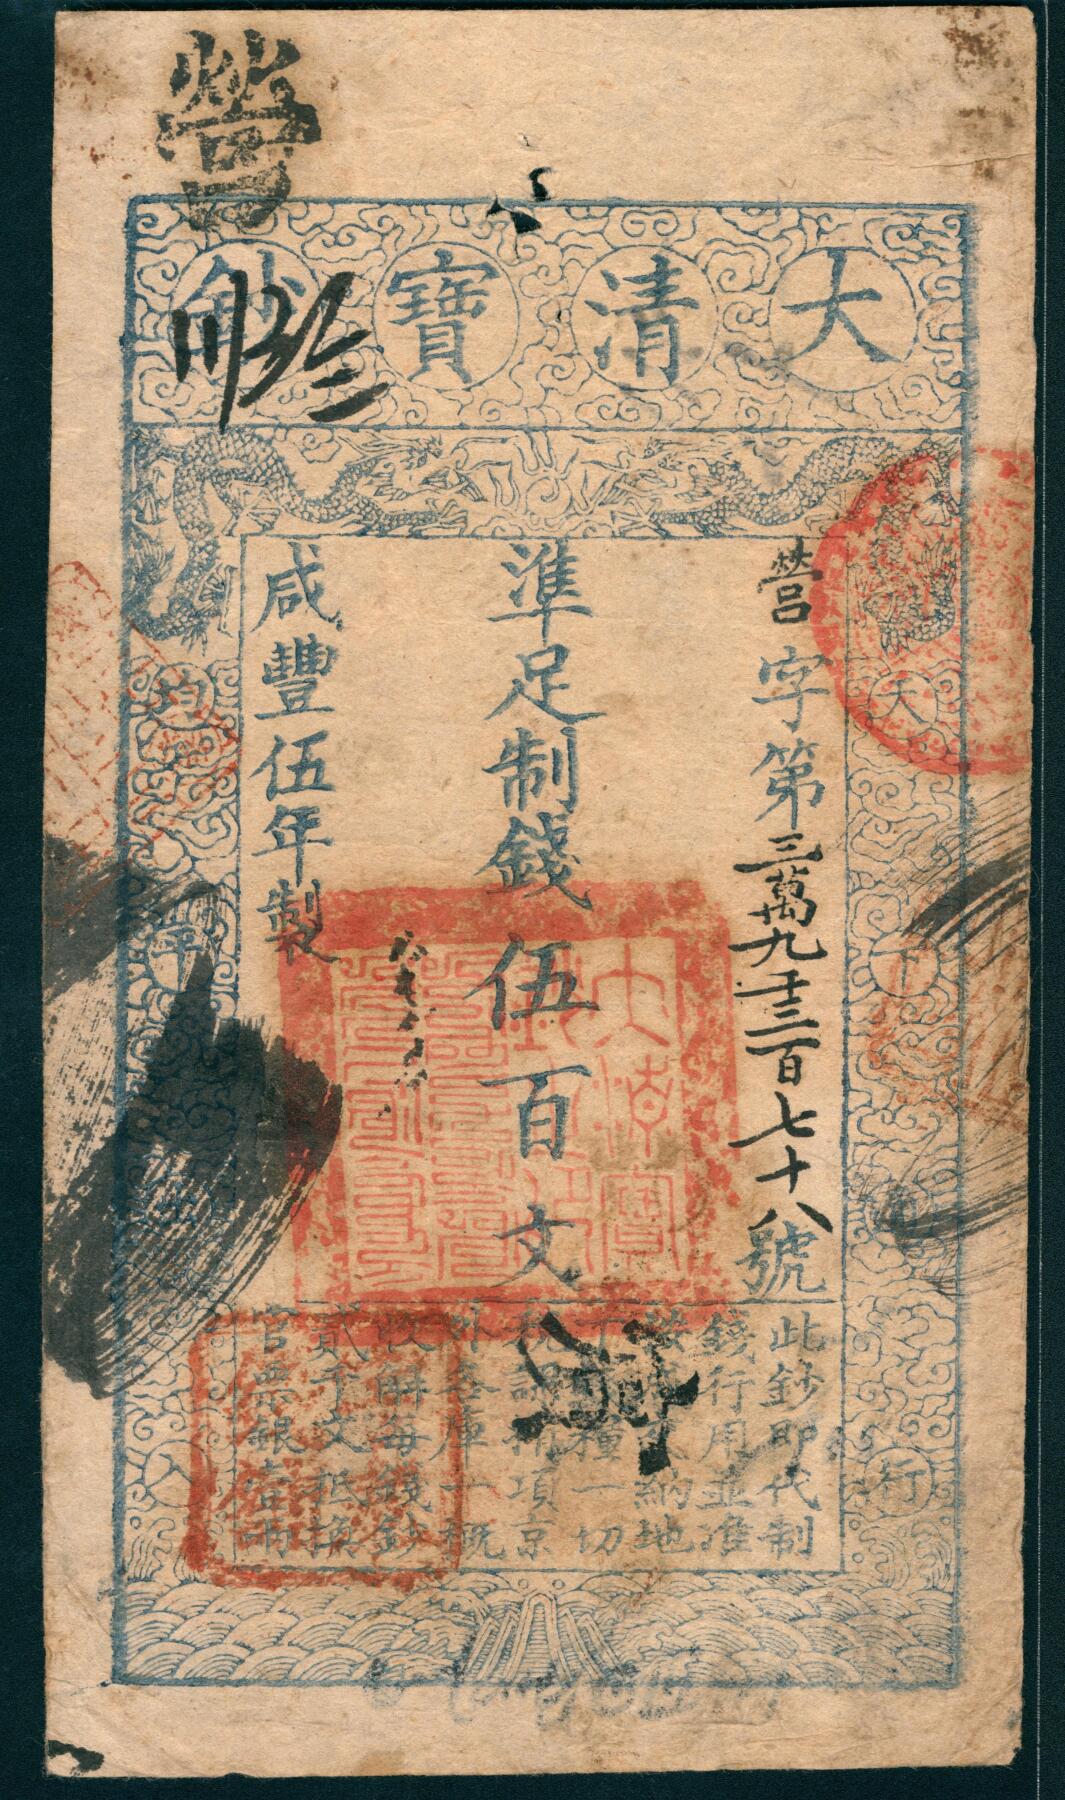 營
大清寶鈔
營字第三萬九千三百七十八號
準足制錢伍百文
咸豐伍年製
天下
行
均平
此鈔即代制
錢行用並准
按納地
一切
稅課捐項京
外各庫一概
收解每錢鈔
貳千文抵換
官票銀壹兩